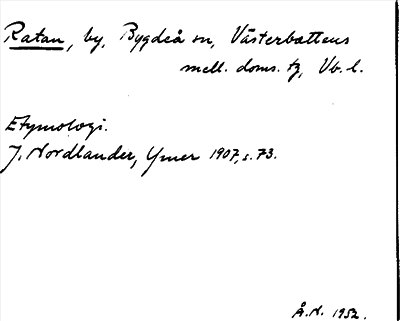 Ratan, by, Bygdeå sn, Västerbottens
mell. doms. tg, Vb. l.
Etymologi.
J. Nordlander, Ymer 1907, s. 73.
Å.N. 1952.